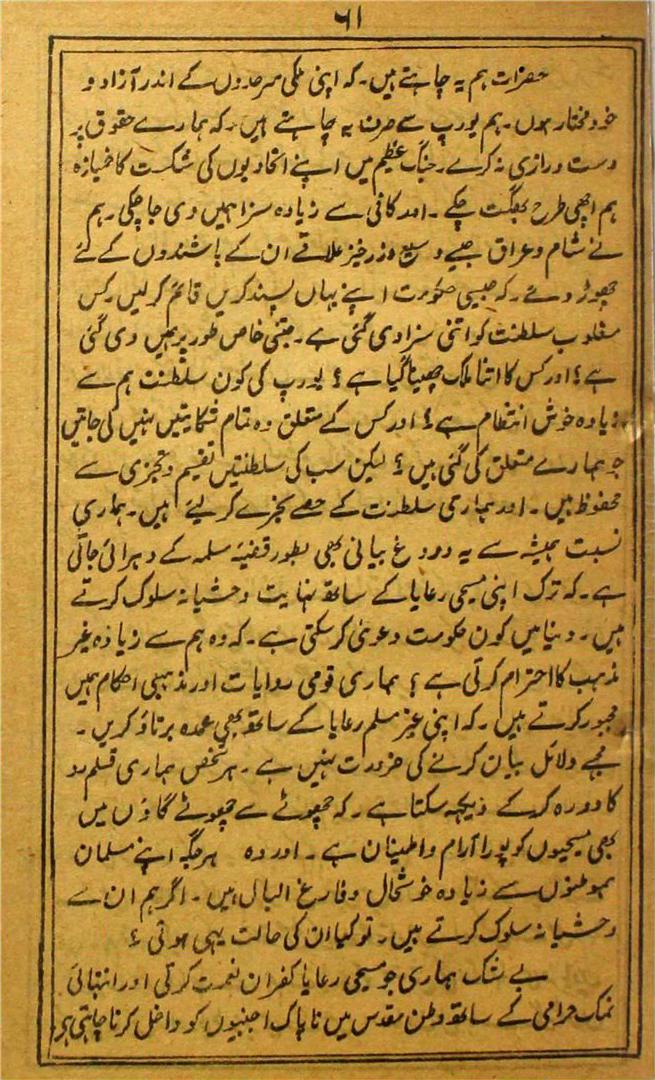 ۶۱
حضرات ہم یہ چاہتے ہیں۔ کہ اپنی ملکی سرحدوں کے اندر آزاد و
خود مختار ہوں۔ ہم یورپ سے صرف یہ چاہتے ہیں۔ کہ ہمارے حقوق پر
دست درازی نہ کرے۔ جنگ عظیم میں اپنے اتحادیوں کی شکست کا خمیازہ
ہم اچھی طرح بھگت چکے۔ اور کافی سے زیادہ سزا ہمیں دی جا چکی۔ ہم
نے شام و عراق جیسے وسیع و زرخیز علاقے ان کے باشندوں کے لئے
چھوڑ دئے۔ کہ جیسی حکومت اپنے یہاں پسند کریں قائم کر لیں۔ کس
مغلوب سلطنت کو اتنی سزا دی گئی ہے۔ جتنی خاص طور پر ہمیں دی گئی
ہے؟ اور کس کا اتنا ملک چھینا گیا ہے؟ یورپ کی کون سلطنت ہم سے
زیادہ خوش انتظام ہے؟ اور کس کے متعلق وہ تمام شکایتیں نہیں کی جاتیں
جو ہمارے متعلق کی گئی ہیں؟ لیکن سب کی سلطنتیں تقسیم و تجزی سے
محفوظ ہیں۔ اور ہماری سلطنت کے حصے بخرے کر لیئے ہیں۔ ہماری
نسبت ہمیشہ سے یہ دروغ بیانی بھی بطور قضیۂ مسلمہ کے دہرائی جاتی
ہے۔ کہ ترک اپنی مسیحی رعایا کے ساتھ نہایت وحشیانہ سلوک کرتے
ہیں۔ دنیا میں کون حکومت دعویٰ کر سکتی ہے۔ کہ وہ ہم سے زیادہ غیر
مذہب کا احترام کرتی ہے؟ ہماری قومی روایات اور مذہبی احکام ہمیں
مجبور کرتے ہیں۔ کہ اپنی غیر مسلم رعایا کے ساتھ بھی عمدہ برتاؤ کریں۔
مجھے دلائل بیان کرنے کی ضرورت نہیں ہے۔ ہر شخص ہماری قلمرو
کا دورہ کر کے دیکھ سکتا ہے۔ کہ چھوٹے سے چھوٹے گاؤں میں
بھی مسیحیوں کو پورا آرام و اطمینان ہے۔ اور وہ ہر جگہ اپنے مسلمان
ہموطنوں سے زیادہ خوشحال و فارغ البال ہیں۔ اگر ہم ان سے
وحشیانہ سلوک کرتے ہیں۔ تو کیا ان کی حالت یہی ہوتی؟
بے شک ہماری جو مسیحی رعایا کفران نعمت کرتی اور انتہائی
نمک حرامی کے ساتھ وطن مقدس میں ناپاک اجنبیوں کو داخل کرنا چاہتی ہو